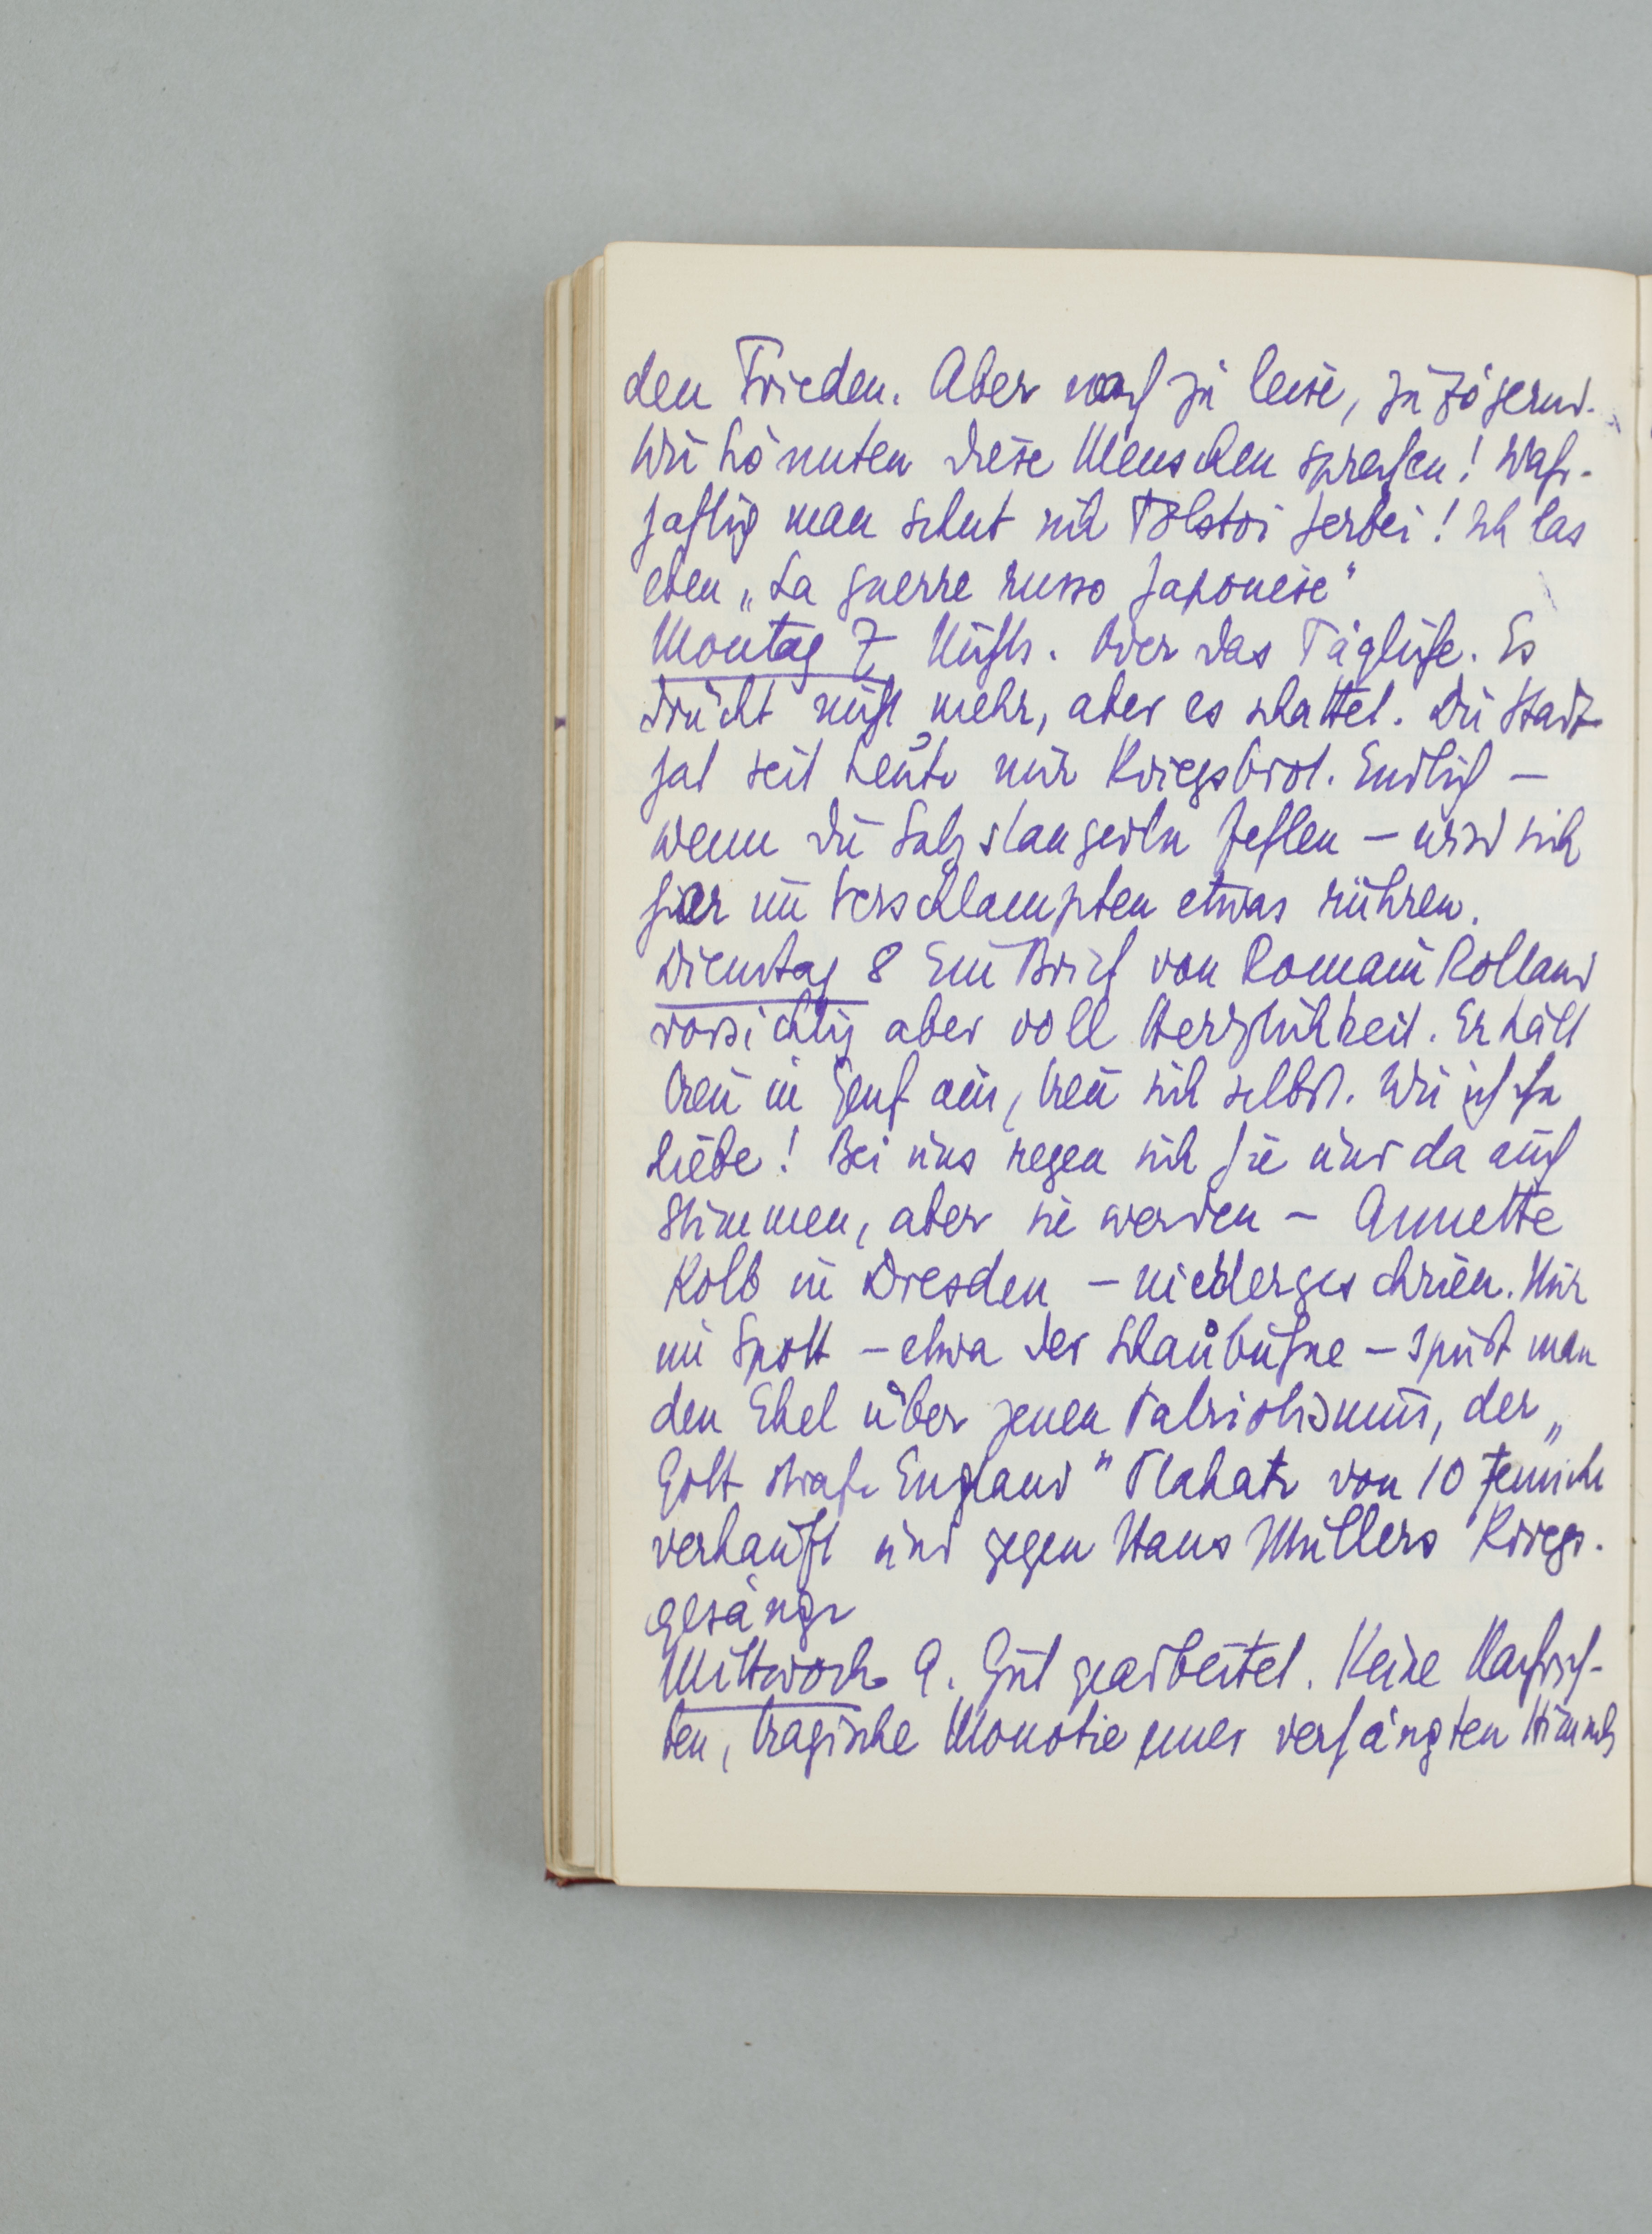 den Frieden. Aber noch zu leise, zu zögernd.
Wie könnten diese Menschen sprechen! Wahr-
haftig man sehnt sich Tolstoi herbei! Ich las
eben „La guerre russo japoneise"
Montag 7 Nichts. Oder das Tägliche. Es
drückt nicht mehr, aber es schattet. Die Stadt
hat seit heute nur Kriegsbrot. Endlich –
wenn die Salzstangerln fehlen – wird sich
hier im Verschlampten etwas rühren.
Dienstag 8 Ein Brief von Romain Rolland
vorsichtig aber voll Herzlichkeit. Er hält
treu in Genf aus, treu sich selbst. Wie ich ihn
liebe! Bei uns regen sich hie und da auch
Stimmen, aber sie werden – Annette
Kolb in Dresden – niedergeschrien. Nur
im Spott – etwa der Schaubühne – spürt man
den Ekel über jenen Patriotismus, der „
Gott strafe England" Plakate von 10 Pfennich
verkauft und gegen Hans Müllers Kriegs-
gesänge
Mittwoch 9. Gut gearbeitet. Keine Nachrich-
ten, tragische Monotie eines verhängten Himmels